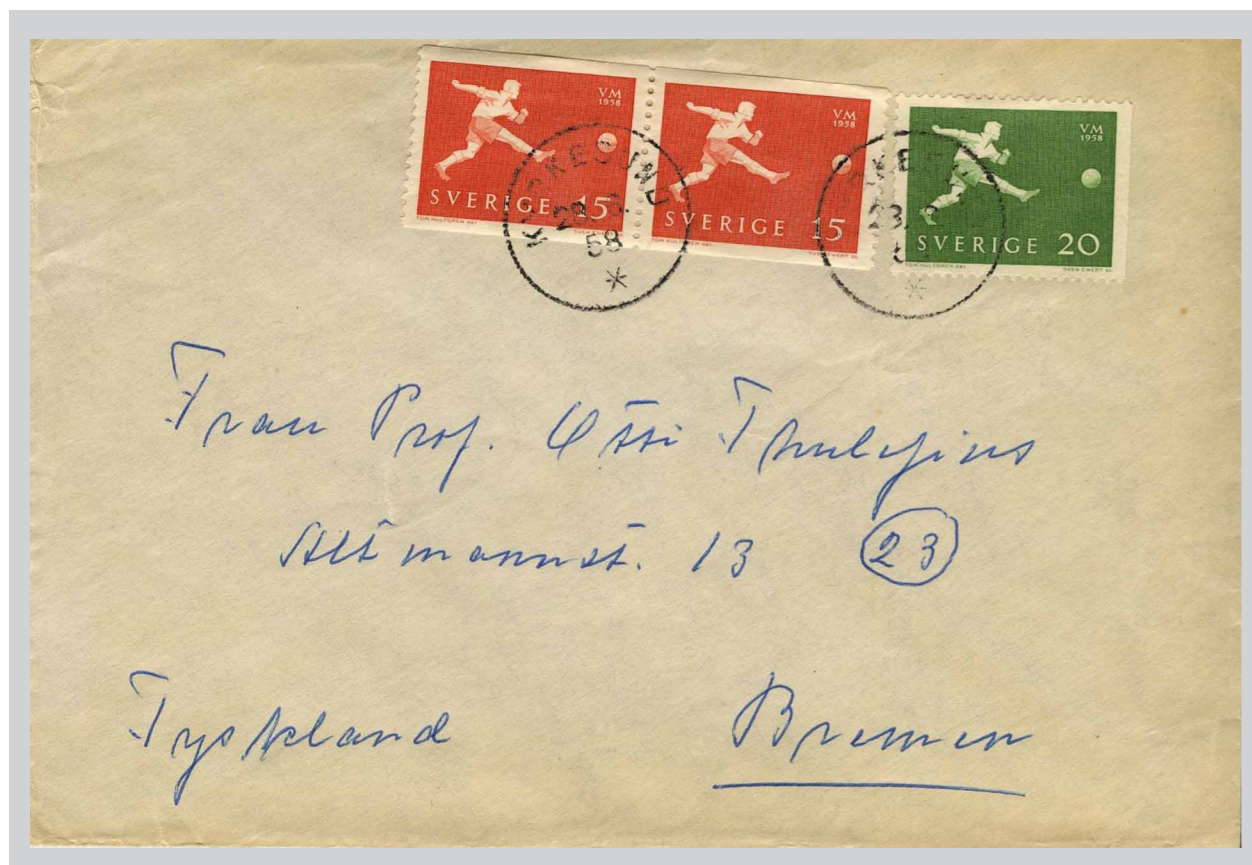 VM
1958
SVERIGE 15
VM
1958
SVERIGE 15
VM
1958
SVERIGE 20
58
Frau Prof. Otti Thulesius
Altmannst. 13 23
Tyskland Bremen